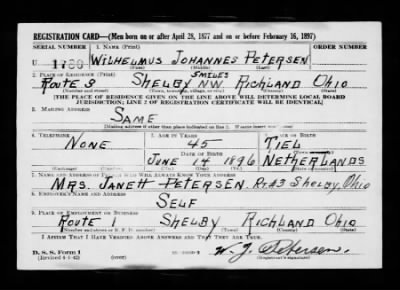 REGISTRATION CARD—(Men born on or after April 28, 1877 and on or before February 16, 1897)
SERIAL NUMBER 1. NAME (Print) ORDER NUMBER
U 1780 WILHELMUS JOHANNES PETERSEN
(First) (Middle) (Last)
2. PLACE OF RESIDENCE (Print)
5 MILES
ROUTE 3 SHELBY NW. RICHLAND OHIO
(Number and street) (Town, township, village, or city) (County) (State)
[THE PLACE OF RESIDENCE GIVEN ON THE LINE ABOVE WILL DETERMINE LOCAL BOARD
JURISDICTION; LINE 2 OF REGISTRATION CERTIFICATE WILL BE IDENTICAL]
3. MAILING ADDRESS
SAME
[Mailing address if other than place indicated on line 2. If same insert word same]
4. TELEPHONE 5. AGE IN YEARS 6. PLACE OF BIRTH
NONE 45 TIEL
DATE OF BIRTH
JUNE 14 1896 NETHERLANDS
(Exchange) (Number) (Mo.) (Day) (Yr.) (State or country)
7. NAME AND ADDRESS OF PERSON WHO WILL ALWAYS KNOW YOUR ADDRESS
MRS. JANETT PETERSEN. RT#3 SHELBY, OHIO
8. EMPLOYER'S NAME AND ADDRESS
SELF
9. PLACE OF EMPLOYMENT OR BUSINESS
ROUTE 1 SHELBY RICHLAND OHIO
(Number and street or R. F. D. number) (Town) (County) (State)
I AFFIRM THAT I HAVE VERIFIED ABOVE ANSWERS AND THAT THEY ARE TRUE.
D. S. S. Form 1 W. J. Petersen.
(Revised 4-1-42) (over) (Registrant's signature)